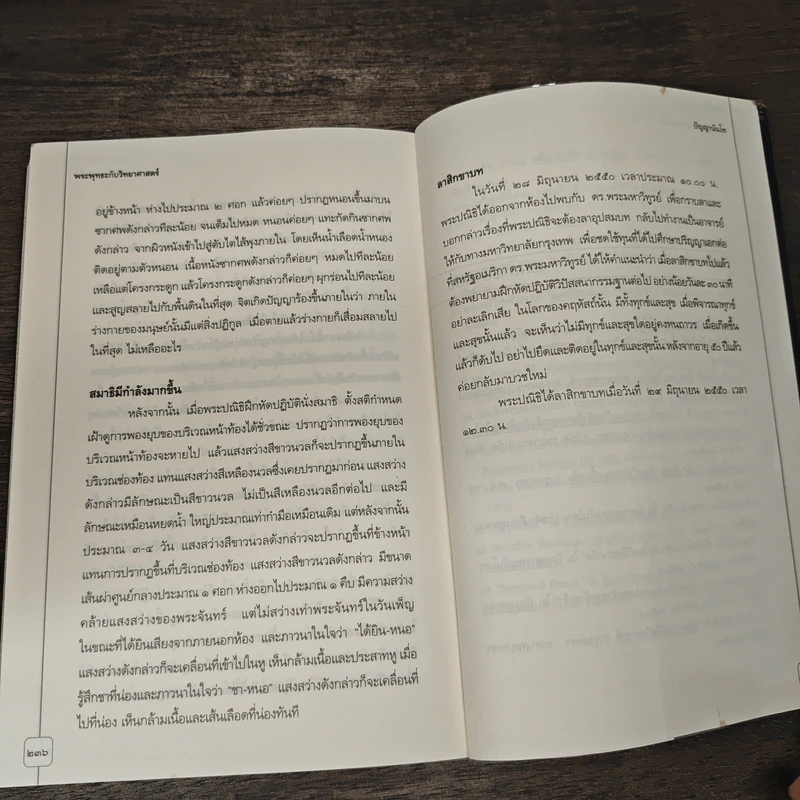 พระพุทธะกับวิทยาศาสตร์
อยู่ข้างหน้า ห่างไปประมาณ ๒ ศอก แล้วค่อยๆ ปรากฏหนอนขึ้นมาบน
ซากศพดังกล่าวทีละน้อย จนเต็มไปหมด หนอนค่อยๆ แทะกัดกินซากศพ
ดังกล่าว จากผิวหนังเข้าไปสู่ตับไตไส้พุงภายใน โดยเห็นน้ำเลือดน้ำหนอง
ติดอยู่ตามตัวหนอน เนื้อหนังซากศพดังกล่าวก็ค่อยๆ หมดไปทีละน้อย
เหลือแต่โครงกระดูก แล้วโครงกระดูกดังกล่าวก็ค่อยๆ ผุกร่อนไปทีละน้อย
และสูญสลายไปกับพื้นดินในที่สุด จิตเกิดปัญญาร้องขึ้นภายในว่า ภายใน
ร่างกายของมนุษย์นั้นมีแต่สิ่งปฏิกูล เมื่อตายแล้วร่างกายก็เสื่อมสลายไป
ในที่สุด ไม่เหลืออะไร
สมาธิมีกำลังมากขึ้น
หลังจากนั้น เมื่อพระปณิธิฝึกหัดปฏิบัตินั่งสมาธิ ตั้งสติกำหนด
เฝ้าดูการพองยุบของบริเวณหน้าท้องได้ชั่วขณะ ปรากฏว่าการพองยุบของ
บริเวณหน้าท้องจะหายไป แล้วแสงสว่างสีขาวนวลก็จะปรากฏขึ้นภายใน
บริเวณช่องท้อง แทนแสงสว่างสีเหลืองนวลซึ่งเคยปรากฏมาก่อน แสงสว่าง
ดังกล่าวมีลักษณะเป็นสีขาวนวล ไม่เป็นสีเหลืองนวลอีกต่อไป และมี
ลักษณะเหมือนหยดน้ำ ใหญ่ประมาณเท่ากำมือเหมือนเดิม แต่หลังจากนั้น
ประมาณ ๓-๔ วัน แสงสว่างสีขาวนวลดังกล่าวจะปรากฏขึ้นที่ข้างหน้า
แทนการปรากฏขึ้นที่บริเวณช่องท้อง แสงสว่างสีขาวนวลดังกล่าว มีขนาด
เส้นผ่าศูนย์กลางประมาณ ๑ ศอก ห่างออกไปประมาณ ๑ คืบ มีความสว่าง
คล้ายแสงสว่างของพระจันทร์ แต่ไม่สว่างเท่าพระจันทร์ในวันเพ็ญ
ในขณะที่ได้ยินเสียงจากภายนอกห้อง และภาวนาในใจว่า “ได้ยิน-หนอ”
แสงสว่างดังกล่าวก็จะเคลื่อนที่เข้าไปในหู เห็นกล้ามเนื้อและประสาทหู เมื่อ
รู้สึกชาที่น่องและภาวนาในใจว่า “ชา-หนอ” แสงสว่างดังกล่าวก็จะเคลื่อนที่
ไปที่น่อง เห็นกล้ามเนื้อและเส้นเลือดที่น่องทันที
๒๓๖
ปัญญานันโท
ลาสิกขาบท
ในวันที่ ๒๘ มิถุนายน ๒๕๕๐ เวลาประมาณ ๑๐.๐๐ น.
พระปณิธิได้ออกจากห้องไปพบกับ ดร.พระมหาวิทูรย์ เพื่อกราบลาและ
บอกกล่าวเรื่องที่พระปณิธิจะต้องลาอุปสมบท กลับไปทำงานเป็นอาจารย์
ให้กับทางมหาวิทยาลัยกรุงเทพ เพื่อชดใช้ทุนที่ได้ไปศึกษาปริญญาเอกต่อ
ที่สหรัฐอเมริกา ดร.พระมหาวิทูรย์ ได้ให้คำแนะนำว่า เมื่อลาสิกขาบทไปแล้ว
ต้องพยายามฝึกหัดปฏิบัติวิปัสสนากรรมฐานต่อไป อย่างน้อยวันละ ๓๐ นาที
อย่าละเลิกเสีย ในโลกของคฤหัสถ์นั้น มีทั้งทุกข์และสุข เมื่อพิจารณาทุกข์
และสุขนั้นแล้ว จะเห็นว่าไม่มีทุกข์และสุขใดอยู่คงทนถาวร เมื่อเกิดขึ้น
แล้วก็ดับไป อย่าไปยึดและติดอยู่ในทุกข์และสุขนั้น หลังจากอายุ ๕๐ ปีแล้ว
ค่อยกลับมาบวชใหม่
พระปณิธิได้ลาสิกขาบทเมื่อวันที่ ๒๙ มิถุนายน ๒๕๕๐ เวลา
๑๒.๓๐ น.